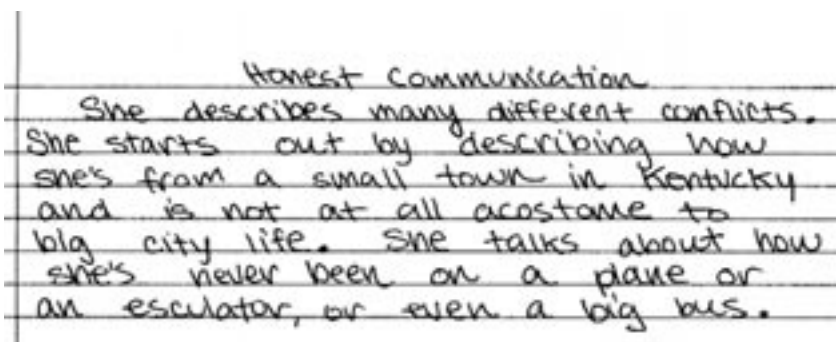 Honest Communication
She describes many different conflicts.
She starts out by describing how
she's from a small town in Kentucky
and is not at all acostome to
big city life. She talks about how
she's never been on a plane or
an esculator, or even a big bus.